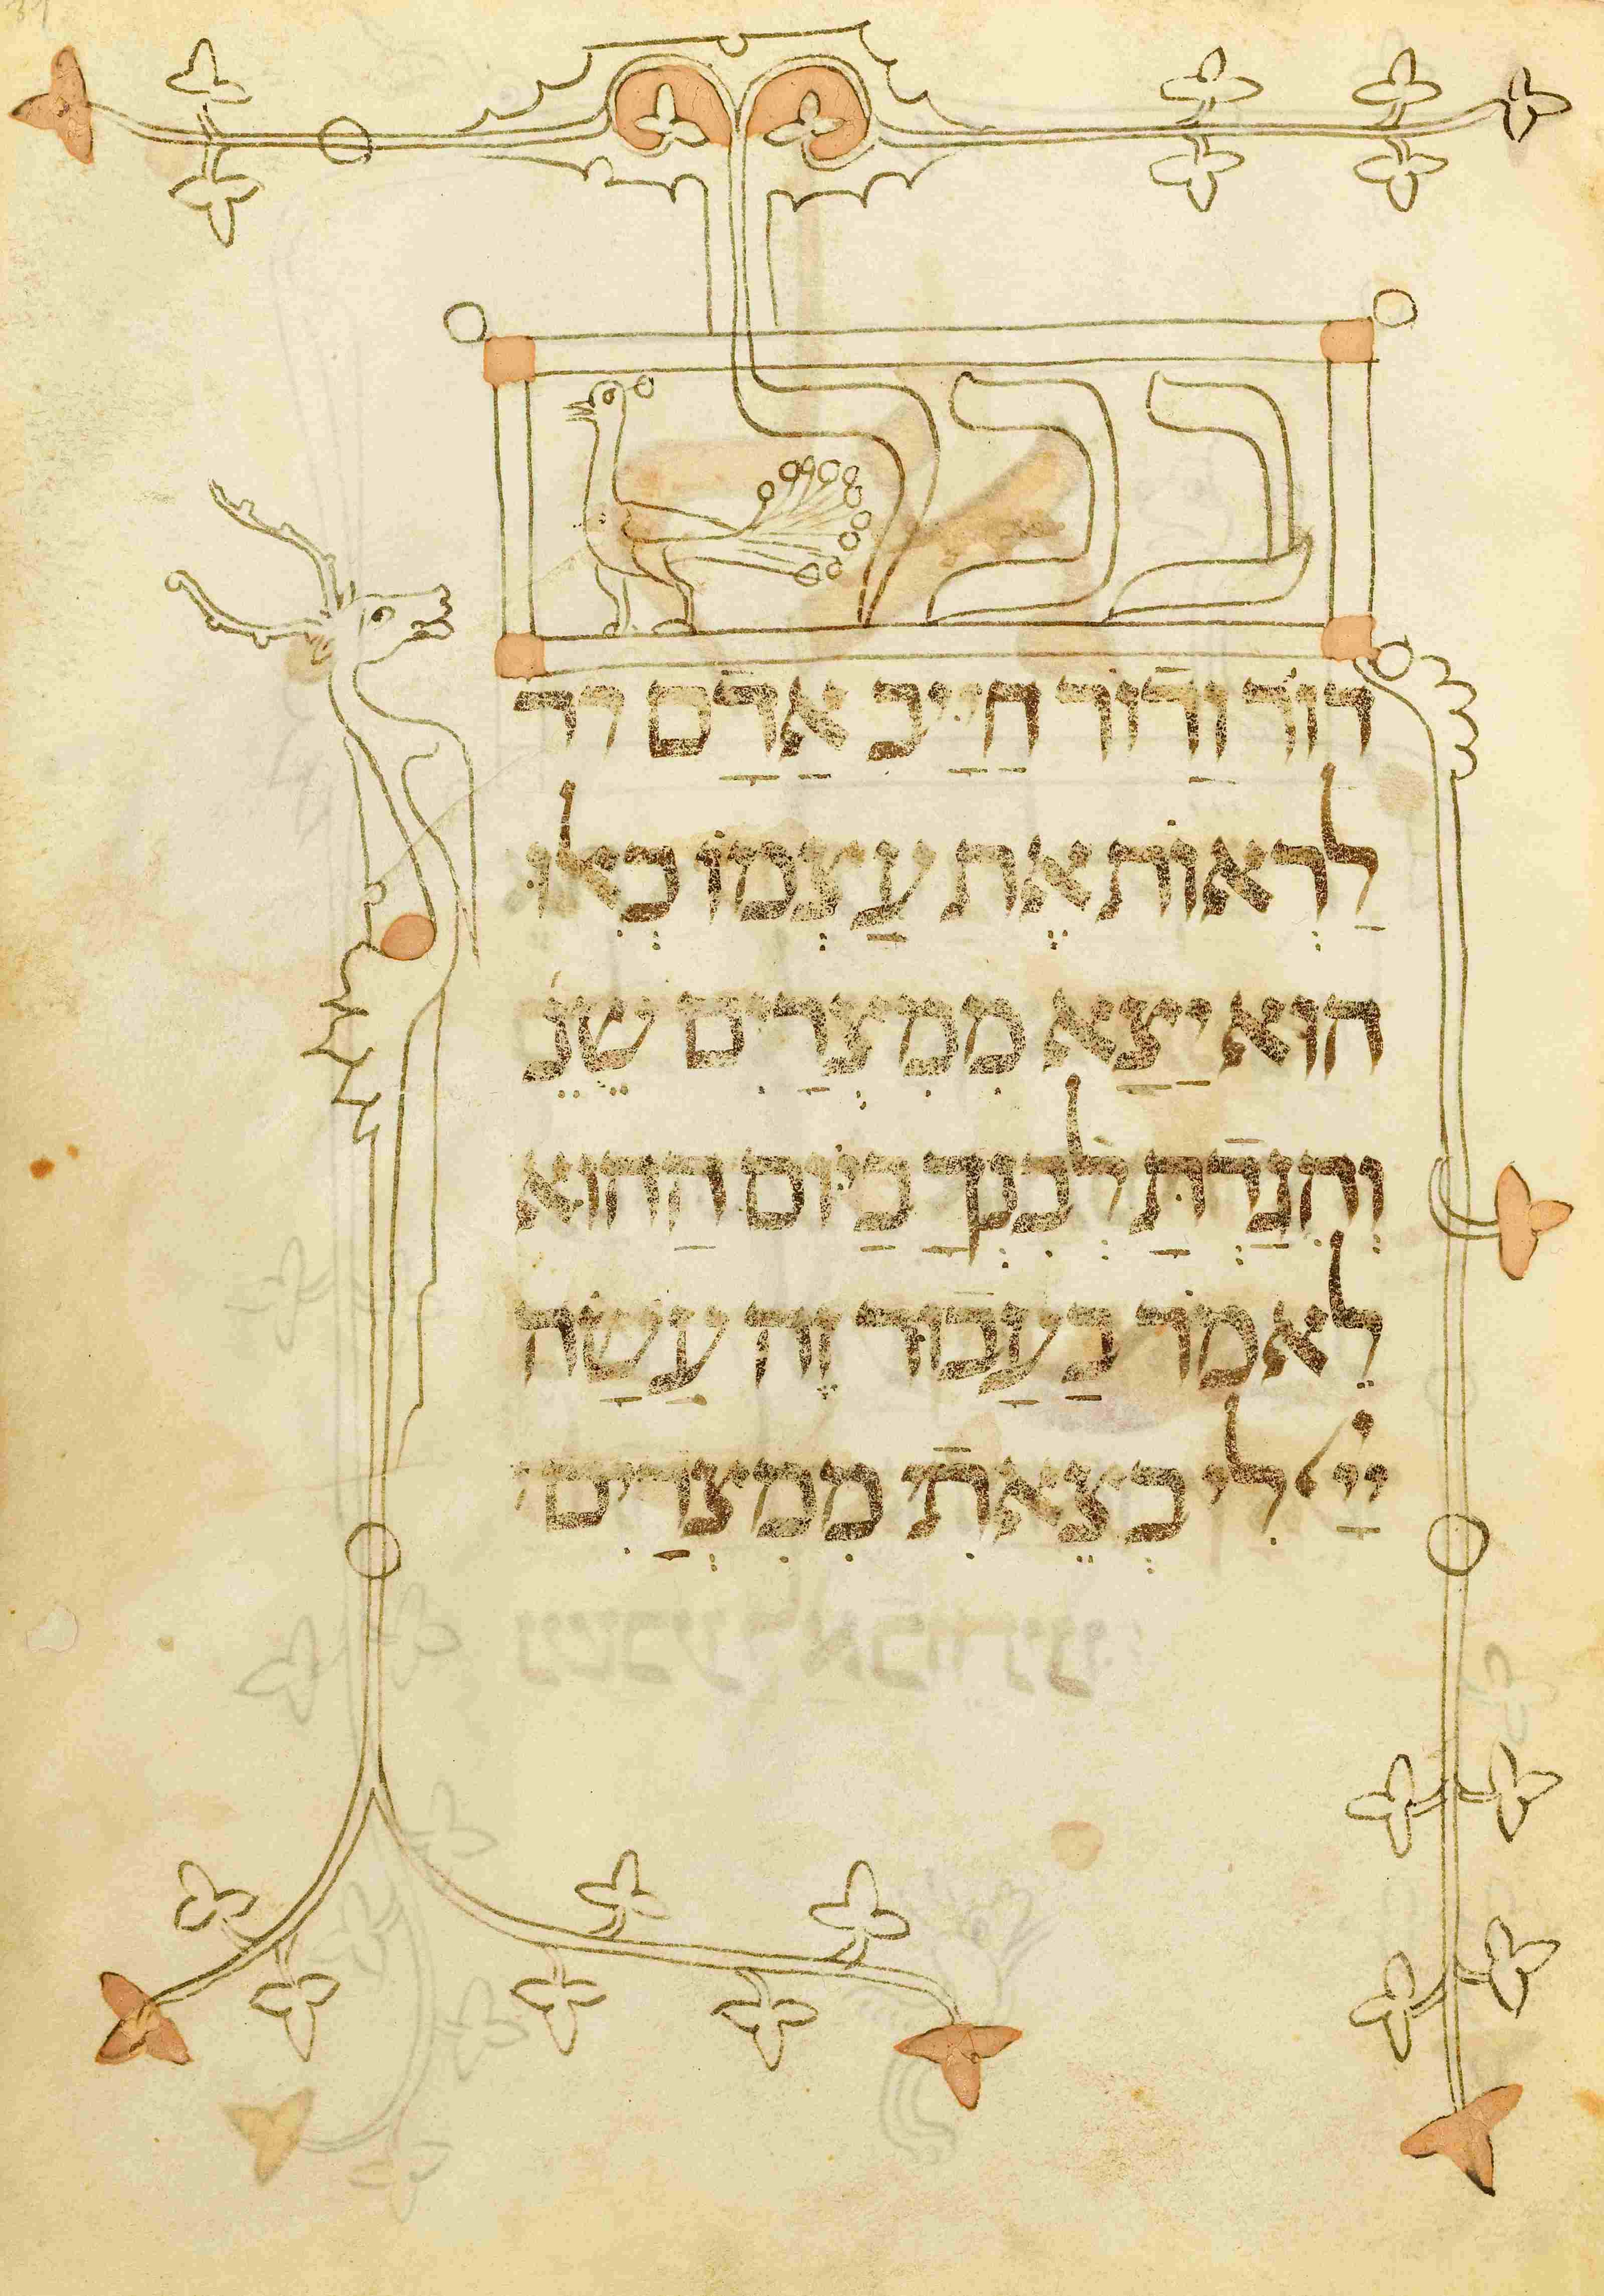 בכל
דור ודור חייב אדם
לראות את עצמו כאלו
הוא יצא ממצרים שנ
והגדת לבנך ביום ההוא
לאמר בעבור זה עשה
יי לי בצאתי ממצרים